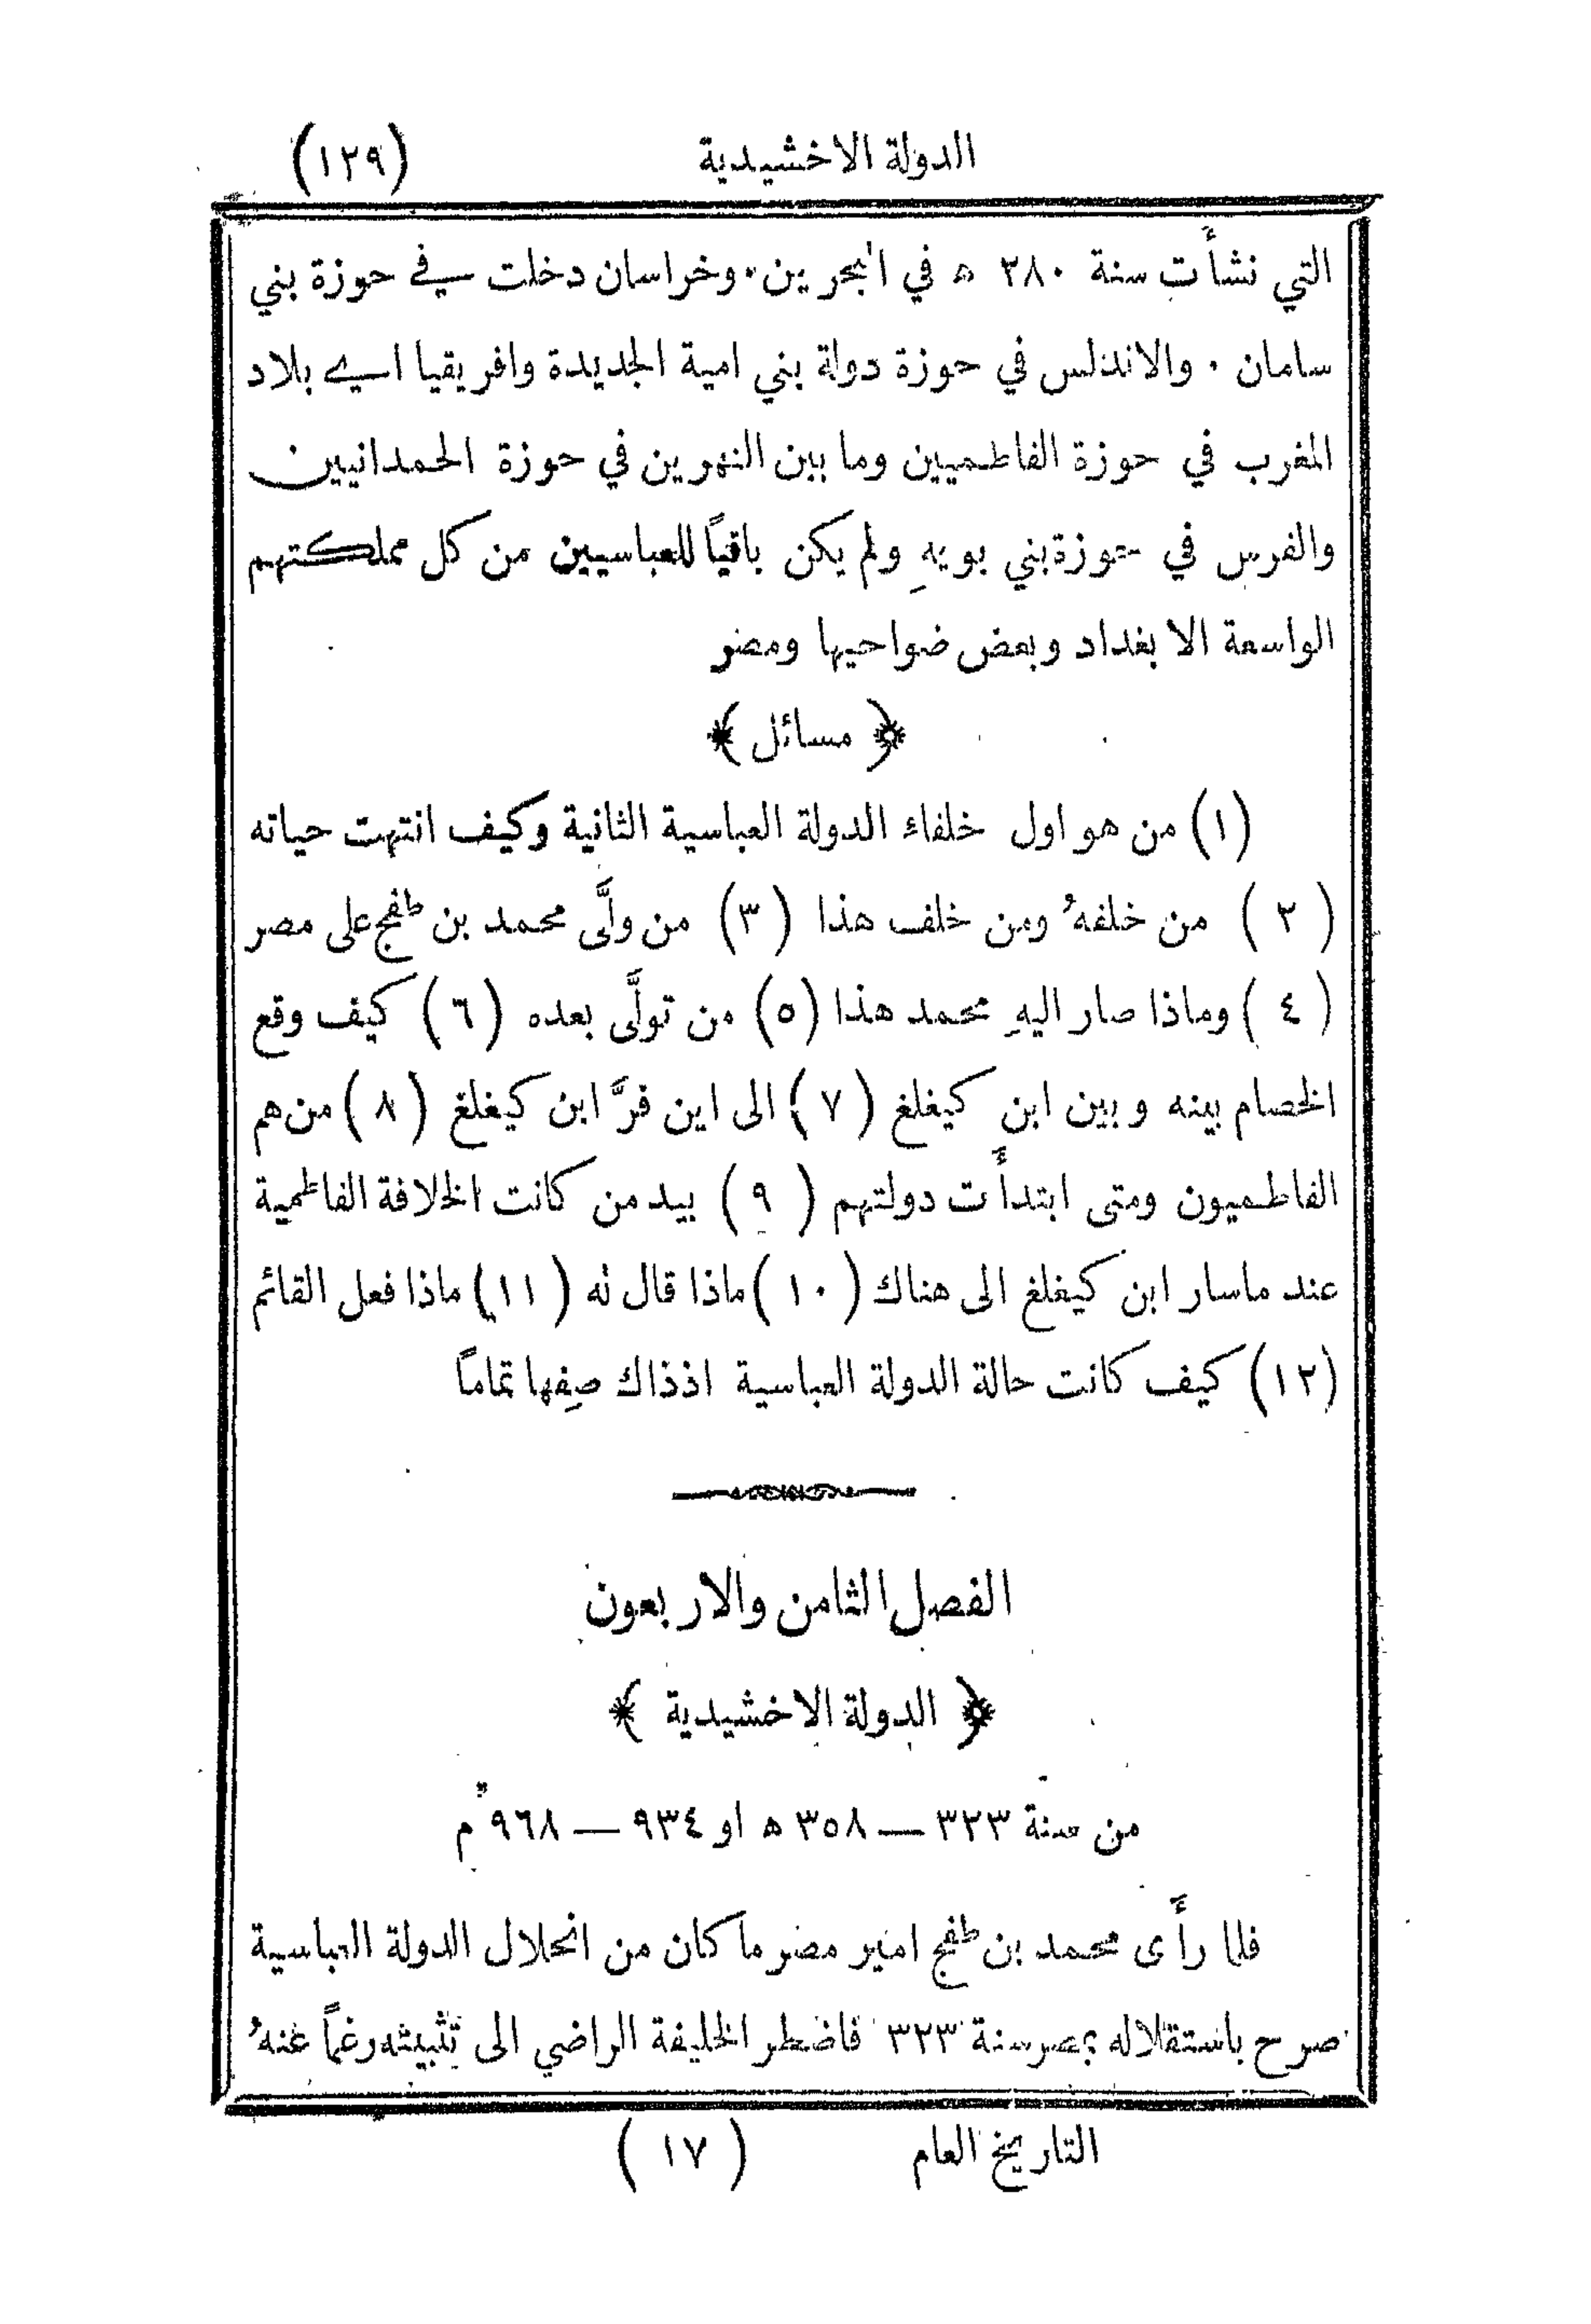 الدولة الاخشيدية (١٢٩)
التي نشأت سنة ٢٨٠ ﻫ في البحرين. وخراسان دخلت في حوزة بني
سامان . والاندلس في حوزة دولة بني امية الجديدة وافريقيا اي بلاد
المغرب في حوزة الفاطميين وما بين النهرين في حوزة الحمدانيين
والفرس في حوزة بني بويهِ ولم يكن باقياً للعباسيين من كل مملكتهم
الواسعة الا بغداد وبعض ضواحيها ومصر
﴿ مسائل ﴾
(١) من هو اول خلفاء الدولة العباسية الثانية وكيف انتهت حياته
( ٢ ) من خلفهُ ومن خلف هذا (٣) من ولَّى محمد بن طفج على مصر
( ٤ ) وماذا صار اليهِ محمد هذا (٥) من تولَّى بعده (٦) كيف وقع
الخصام بينه وبين ابن كيغلغ (٧) الى اين فرَّ ابن كيغلغ (٨) من هم
الفاطميون ومتى ابتدأت دولتهم (٩) بيد من كانت الخلافة الفاطمية
عند ماسار ابن كيغلغ الى هناك (١٠) ماذا قال له (١١) ماذا فعل القائم
(١٢) كيف كانت حالة الدولة العباسية اذذاك صِفها تماماً
الفصل الثامن والاربعون
﴿ الدولة الاخشيدية ﴾
من سنة ٣٢٣ — ٣٥٨ ﻫ او ٩٣٤ — ٩٦٨ م
فلما رأَى محمد بن طفج امير مصر ما كان من انحلال الدولة العباسية
صرح باستقلاله بمصر سنة ٣٢٣ فاضطر الخليفة الراضي الى تثبيته رغماً عنهُ
التاريخ العام ( ١٧ )